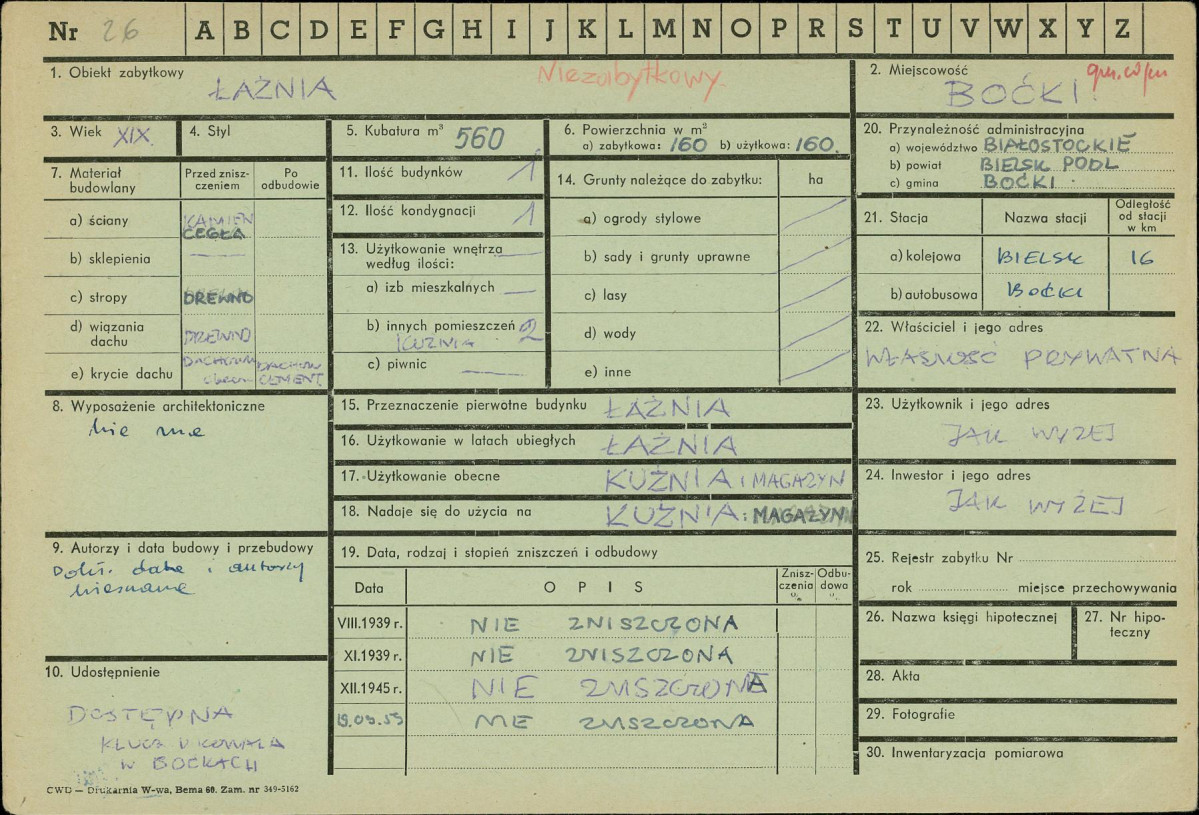 Nr 26 A B C D E F G H I J K L M N O P R S T U V W X Y Z
1. Obiekt zabytkowy
ŁAŹNIA
Niezabytkowy.
2. Miejscowość
BOĆKI
3. Wiek XIX.
4. Styl
5. Kubatura m³ 560
6. Powierzchnia w m²
a) zabytkowa: 160 b) użytkowa: 160.
20. Przynależność administracyjna
a) województwo BIAŁOSTOCKIE
b) powiat BIELSK PODL
c) gmina BOĆKI
7. Materiał budowlany
Przed zniszczeniem
Po odbudowie
a) ściany KAMIEŃ
CEGŁA
b) sklepienia —
c) stropy DREWNO
d) wiązania dachu DREWNO
e) krycie dachu
CEMENT
11. Ilość budynków 1
12. Ilość kondygnacji 1
13. Użytkowanie wnętrza według ilości: —
a) izb mieszkalnych —
b) innych pomieszczeń 2
KUŹNIA
c) piwnic —
14. Grunty należące do zabytku: ha
a) ogrody stylowe
b) sady i grunty uprawne
c) lasy
d) wody
e) inne
21. Stacja
Nazwa stacji
Odległość od stacji w km
a) kolejowa BIELSK 16
b) autobusowa BOĆKI
22. Właściciel i jego adres
WŁASNOŚĆ PRYWATNA
8. Wyposażenie architektoniczne
nie ma
15. Przeznaczenie pierwotne budynku ŁAŹNIA
16. Użytkowanie w latach ubiegłych ŁAŹNIA
17. Użytkowanie obecne KUŹNIA i MAGAZYN
18. Nadaje się do użycia na KUŹNIA i MAGAZYN
23. Użytkownik i jego adres
JAK WYŻEJ
24. Inwestor i jego adres
JAK WYŻEJ
9. Autorzy i data budowy i przebudowy
Dokł. data i autorzy
nieznane
19. Data, rodzaj i stopień zniszczeń i odbudowy
Data OPIS Zniszczenia % Odbudowa %
VIII.1939 r. NIE ZNISZCZONA
XI.1939 r. NIE ZNISZCZONA
XII.1945 r. NIE ZNISZCZONA
19.09.59 NIE ZNISZCZONA
25. Rejestr zabytku Nr
rok miejsce przechowywania
26. Nazwa księgi hipotecznej
27. Nr hipoteczny
28. Akta
29. Fotografie
30. Inwentaryzacja pomiarowa
10. Udostępnienie
DOSTĘPNA
KLUCZ U KOWALA
W BOĆKACH
CWD — Drukarnia W-wa, Bema 60. Zam. nr 349-5162